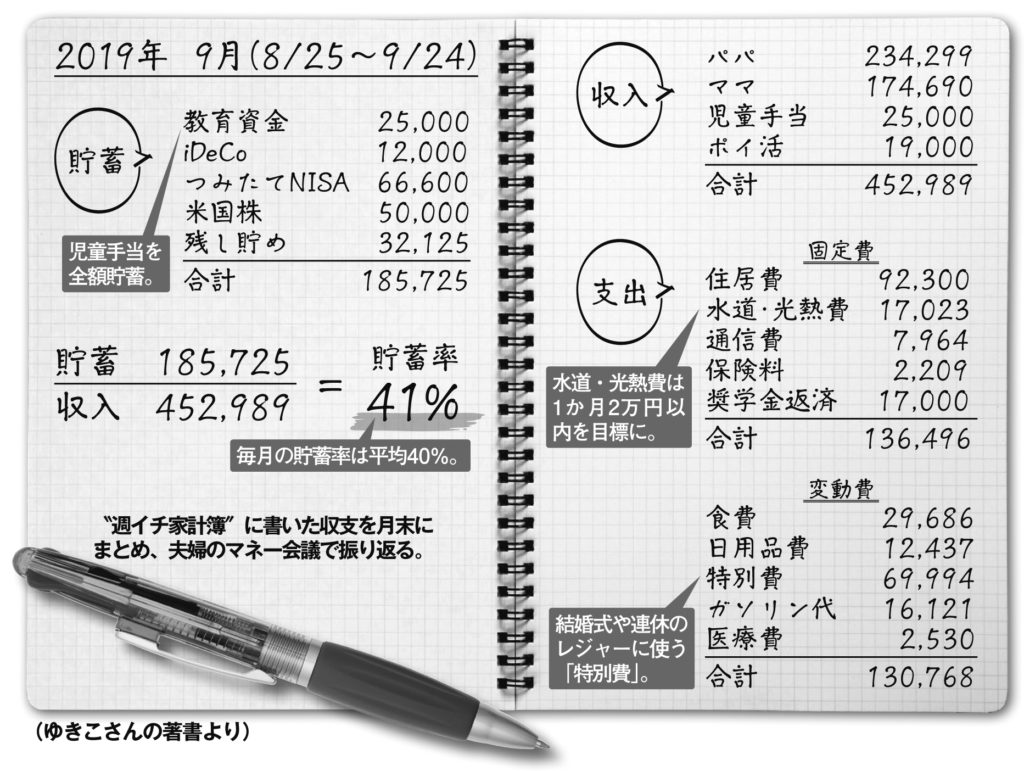 2019年 9月(8/25〜9/24)
貯蓄
教育資金 25,000
iDeCo 12,000
つみたてNISA 66,600
米国株 50,000
残し貯め 32,125
合計 185,725
児童手当を
全額貯蓄。
貯蓄 185,725
収入 452,989
=
貯蓄率
41%
毎月の貯蓄率は平均40%。
〝週イチ家計簿〟に書いた収支を月末に
まとめ、夫婦のマネー会議で振り返る。
(ゆきこさんの著書より)
収入
パパ 234,299
ママ 174,690
児童手当 25,000
ポイ活 19,000
合計 452,989
支出
固定費
住居費 92,300
水道・光熱費 17,023
通信費 7,964
保険料 2,209
奨学金返済 17,000
合計 136,496
水道・光熱費は
1か月2万円以
内を目標に。
変動費
食費 29,686
日用品費 12,437
特別費 69,994
ガソリン代 16,121
医療費 2,530
合計 130,768
結婚式や連休の
レジャーに使う
「特別費」。